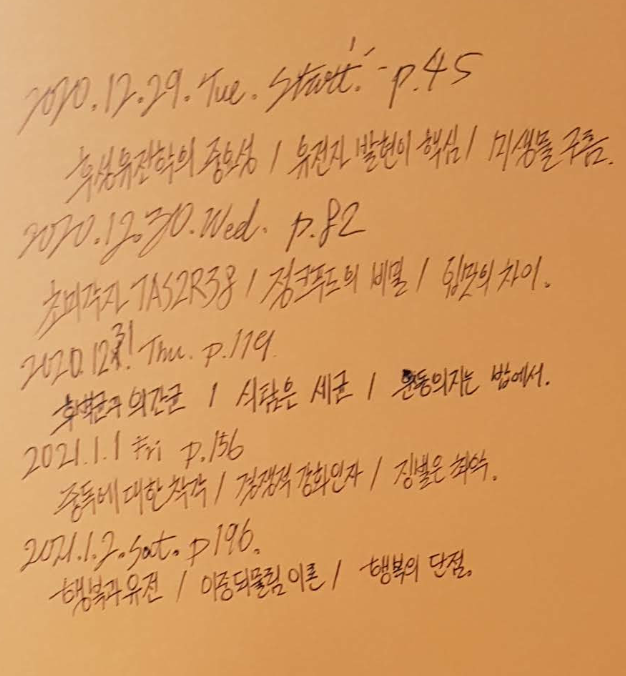 2020.12.29.Tue. Start! - p.45
후성유전학의 중요성 / 유전자 발현이 핵심 / 미생물 구름.
2020.12.30.Wed. p.82
초미각자 TAS2R38 / 정크푸드의 비밀 / 입맛의 차이.
2020.12.31. Thu. p.119
후벽균과 의간균 / 식탐은 세균 / 운동의지는 밥에서.
2021.1.1 Fri p.156
중독에 대한 착각 / 경쟁적 강화인자 / 징벌은 최악.
2021.1.2.Sat. p196.
행복과 유전 / 이중되물림 이론 / 행복의 단점.